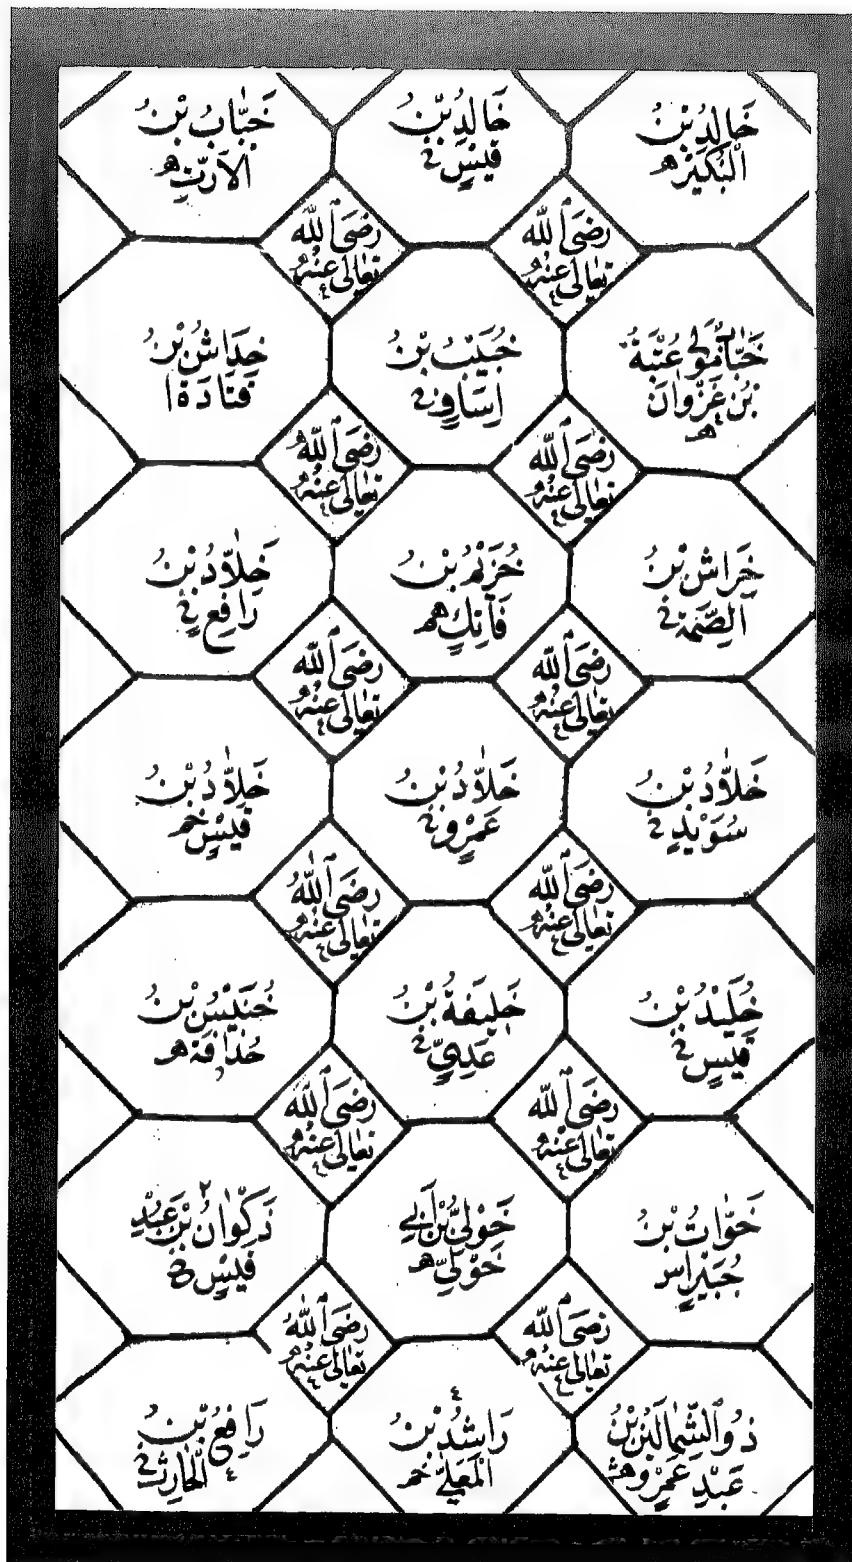 خَالِدُ بْنُ
الْبُكَيْرِ ه
خَالِدُ بْنُ
قَيْسٍ خ
خَبَّابُ بْنُ
الْاَرَتِّ ه
رَضِيَ اللّٰهُ
تَعَالٰى عَنْهُ
رَضِيَ اللّٰهُ
تَعَالٰى عَنْهُ
خَبَّابٌ مَوْلٰى عُتْبَةَ
بْنِ غَزْوَانَ
ه
خُبَيْبُ بْنُ
اِسَافٍ خ
خِدَاشُ بْنُ
قَتَادَةَ ا
رَضِيَ اللّٰهُ
تَعَالٰى عَنْهُ
رَضِيَ اللّٰهُ
تَعَالٰى عَنْهُ
خِرَاشُ بْنُ
الصِّمَّةِ خ
خُرَيْمُ بْنُ
فَاتِكٍ ه
خَلَّادُ بْنُ
رَافِعٍ خ
رَضِيَ اللّٰهُ
تَعَالٰى عَنْهُ
رَضِيَ اللّٰهُ
تَعَالٰى عَنْهُ
خَلَّادُ بْنُ
سُوَيْدٍ خ
خَلَّادُ بْنُ
عَمْرٍو خ
خَلَّادُ بْنُ
قَيْسٍ خ
رَضِيَ اللّٰهُ
تَعَالٰى عَنْهُ
رَضِيَ اللّٰهُ
تَعَالٰى عَنْهُ
خُلَيْدُ بْنُ
قَيْسٍ خ
خَلِيفَةُ بْنُ
عَدِيٍّ خ
خُنَيْسُ بْنُ
حُذَافَةَ ه
رَضِيَ اللّٰهُ
تَعَالٰى عَنْهُ
رَضِيَ اللّٰهُ
تَعَالٰى عَنْهُ
خَوَّاتُ بْنُ
جُبَيْرٍ اس
خَوْلِيُّ بْنُ اَبِي
خَوْلِيٍّ ه
ذَكْوَانُ بْنُ عَبْدِ
قَيْسٍ
رَضِيَ اللّٰهُ
تَعَالٰى عَنْهُ
رَضِيَ اللّٰهُ
تَعَالٰى عَنْهُ
ذُو الشِّمَالَيْنِ بْنُ
عَبْدِ عَمْرٍو ه
رَاشِدُ بْنُ
الْمُعَلّٰى خ
رَافِعُ بْنُ
الْحَارِثِ خ